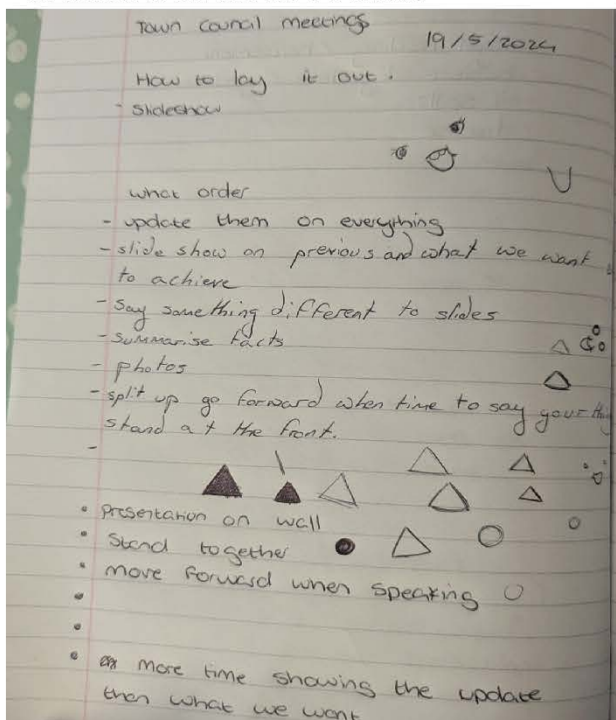 Town Council meetings
19/5/2024
How to lay it out.
- Slideshow
what order
- update them on everything
- slide show on previous and what we want
to achieve
- Say something different to slides
- Summarise facts
- photos
- split up go forward when time to say your thing
stand at the front.
-
• Presentation on wall
• Stand together
• move forward when speaking
•
•
• more time showing the update
than what we want